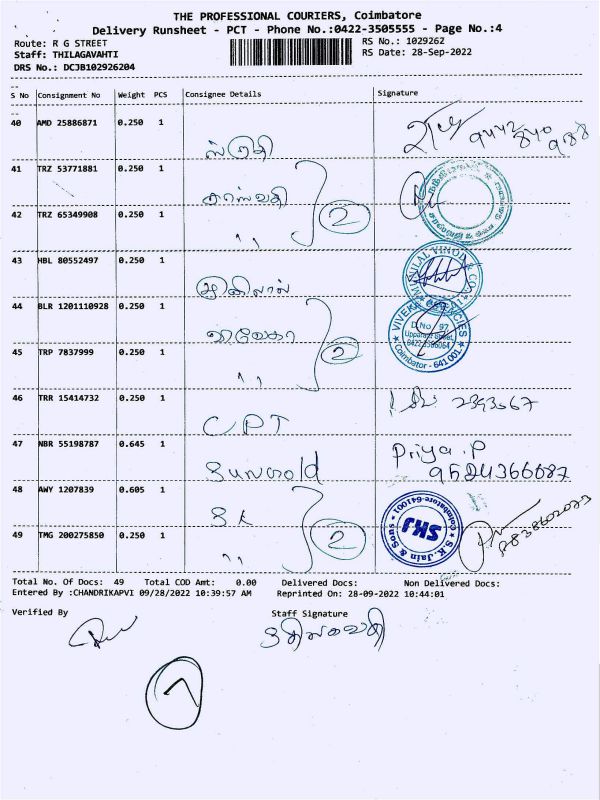 THE PROFESSIONAL COURIERS, Coimbatore
Delivery Runsheet - PCT - Phone No.:0422-3505555 - Page No.:4
Route: R G STREET
RS No.: 1029262
Staff: THILAGAVAHTI
RS Date: 28-Sep-2022
DRS No.: DCJB102926204
S No Consignment No Weight PCS Consignee Details Signature
40 AMD 25886871 0.250 1
41 TRZ 53771881 0.250 1
42 TRZ 65349908 0.250 1 " 2
43 HBL 80552497 0.250 1
MUNILAL VINOD & CO
44 BLR 1201110928 0.250 1
VIVEKA AGENCIES
D.No. 97
Coimbator - 641 001
45 TRP 7837999 0.250 1 " 2
46 TRR 15414732 0.250 1 CPT
47 NBR 55198787 0.645 1 Sungold Priya.P
48 AWY 1207839 0.605 1 SK
SKJ
S.K.Jain & Sons
Coimbatore-641001
49 TMG 200275850 0.250 1 " 2
Total No. Of Docs: 49 Total COD Amt: 0.00 Delivered Docs: Non Delivered Docs:
Entered By :CHANDRIKAPVI 09/28/2022 10:39:57 AM Reprinted On: 28-09-2022 10:44:01
Verified By Staff Signature
7